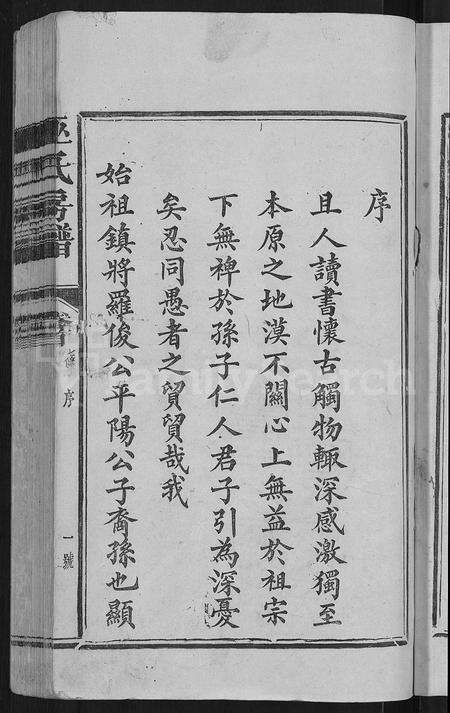 序
且人讀書懷古觸物輙深感激獨至
本原之地漠不關心上無益於祖宗
下無裨於孫子仁人君子引為深憂
矣忍同愚者之貿貿哉我
始祖鎮將羅俊公平陽公子裔孫也顯
巫氏房譜
序
一號
FamilySearch